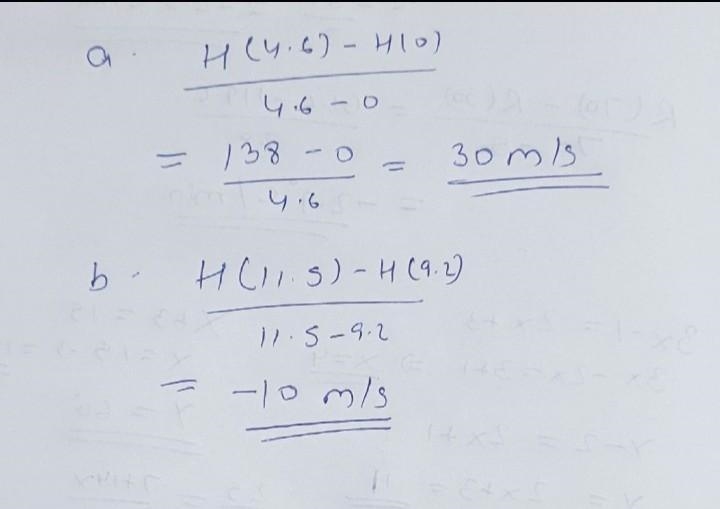 a. H(4.6) - H(0)
4.6 - 0
= 138 - 0 = 30 m/s
4.6
b. H(11.5) - H(9.2)
11.5 - 9.2
= -10 m/s